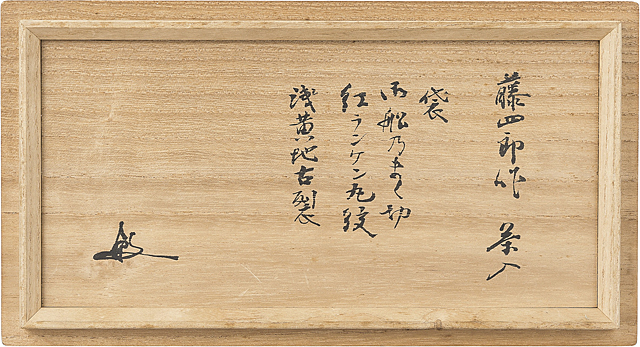 藤四郎作 茶入
袋
御船乃まく切
紅ランケン丸紋
浅黄地古裂